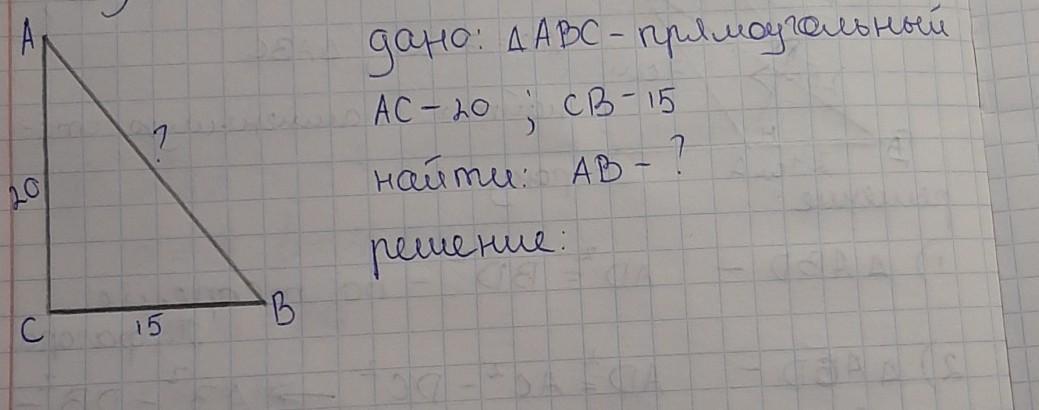 A
дано: △ABC - прямоугольный
AC - 20 ; CB - 15
?
20
найти: AB - ?
решение:
C
15
B